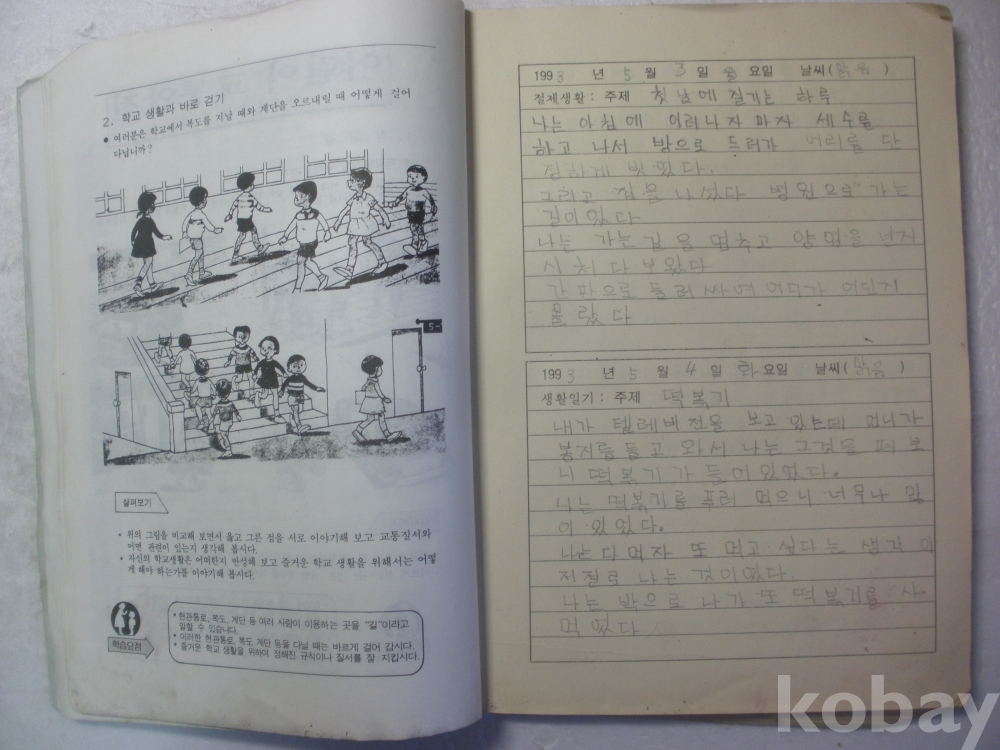 2. 학교 생활과 바로 걷기
● 여러분은 학교에서 복도를 지날 때와 계단을 오르내릴 때 어떻게 걸어
다닙니까?
5-
살펴보기
• 위의 그림을 비교해 보면서 옳고 그른 점을 서로 이야기해 보고 교통질서와
어떤 관련이 있는지 생각해 봅시다.
• 자신의 학교생활은 어떠한지 반성해 보고 즐거운 학교 생활을 위해서는 어떻
게 해야 하는가를 이야기해 봅시다.
학습요점
• 현관통로, 복도, 계단 등 여러 사람이 이용하는 곳을 "길"이라고
말할 수 있습니다.
• 이러한 현관통로, 복도 계단 등을 다닐 때는 바르게 걸어 갑시다.
• 즐거운 학교 생활을 위하여 정해진 규칙이나 질서를 잘 지킵시다.
1993 년 5 월 3 일 월 요일 날씨( 맑음 )
절제생활 : 주제 첫날에 즐기는 하루
나는 아침에 이러나자 마자 세수를
하고 나서 방으로 드러가 머리를 단
정하게 빗었다.
그리고 집을 나섰다 병원으로 가는
길이었다
나는 가는 길을 멈추고 양옆을
시치다 보았다
간파으로 둘러 싸여 어디가 어딘지
몰랐다
1993 년 5 월 4 일 화 요일 날씨( 맑음 )
생활일기 : 주제 떡볶기
내가 텔레비전을 보고 있는데 언니가
봉지를 들고 와서 나는 그것을 펴 보
니 떡볶기가 들어있었다.
나는 떡볶기를 푸러 먹으니 너무나 맛
이 있었다.
나는 다 먹자 또 먹고 싶다는 생각이
저절로 나는 것이었다.
나는 밖으로 나가 또 떡볶기를 사
먹었다
kobay